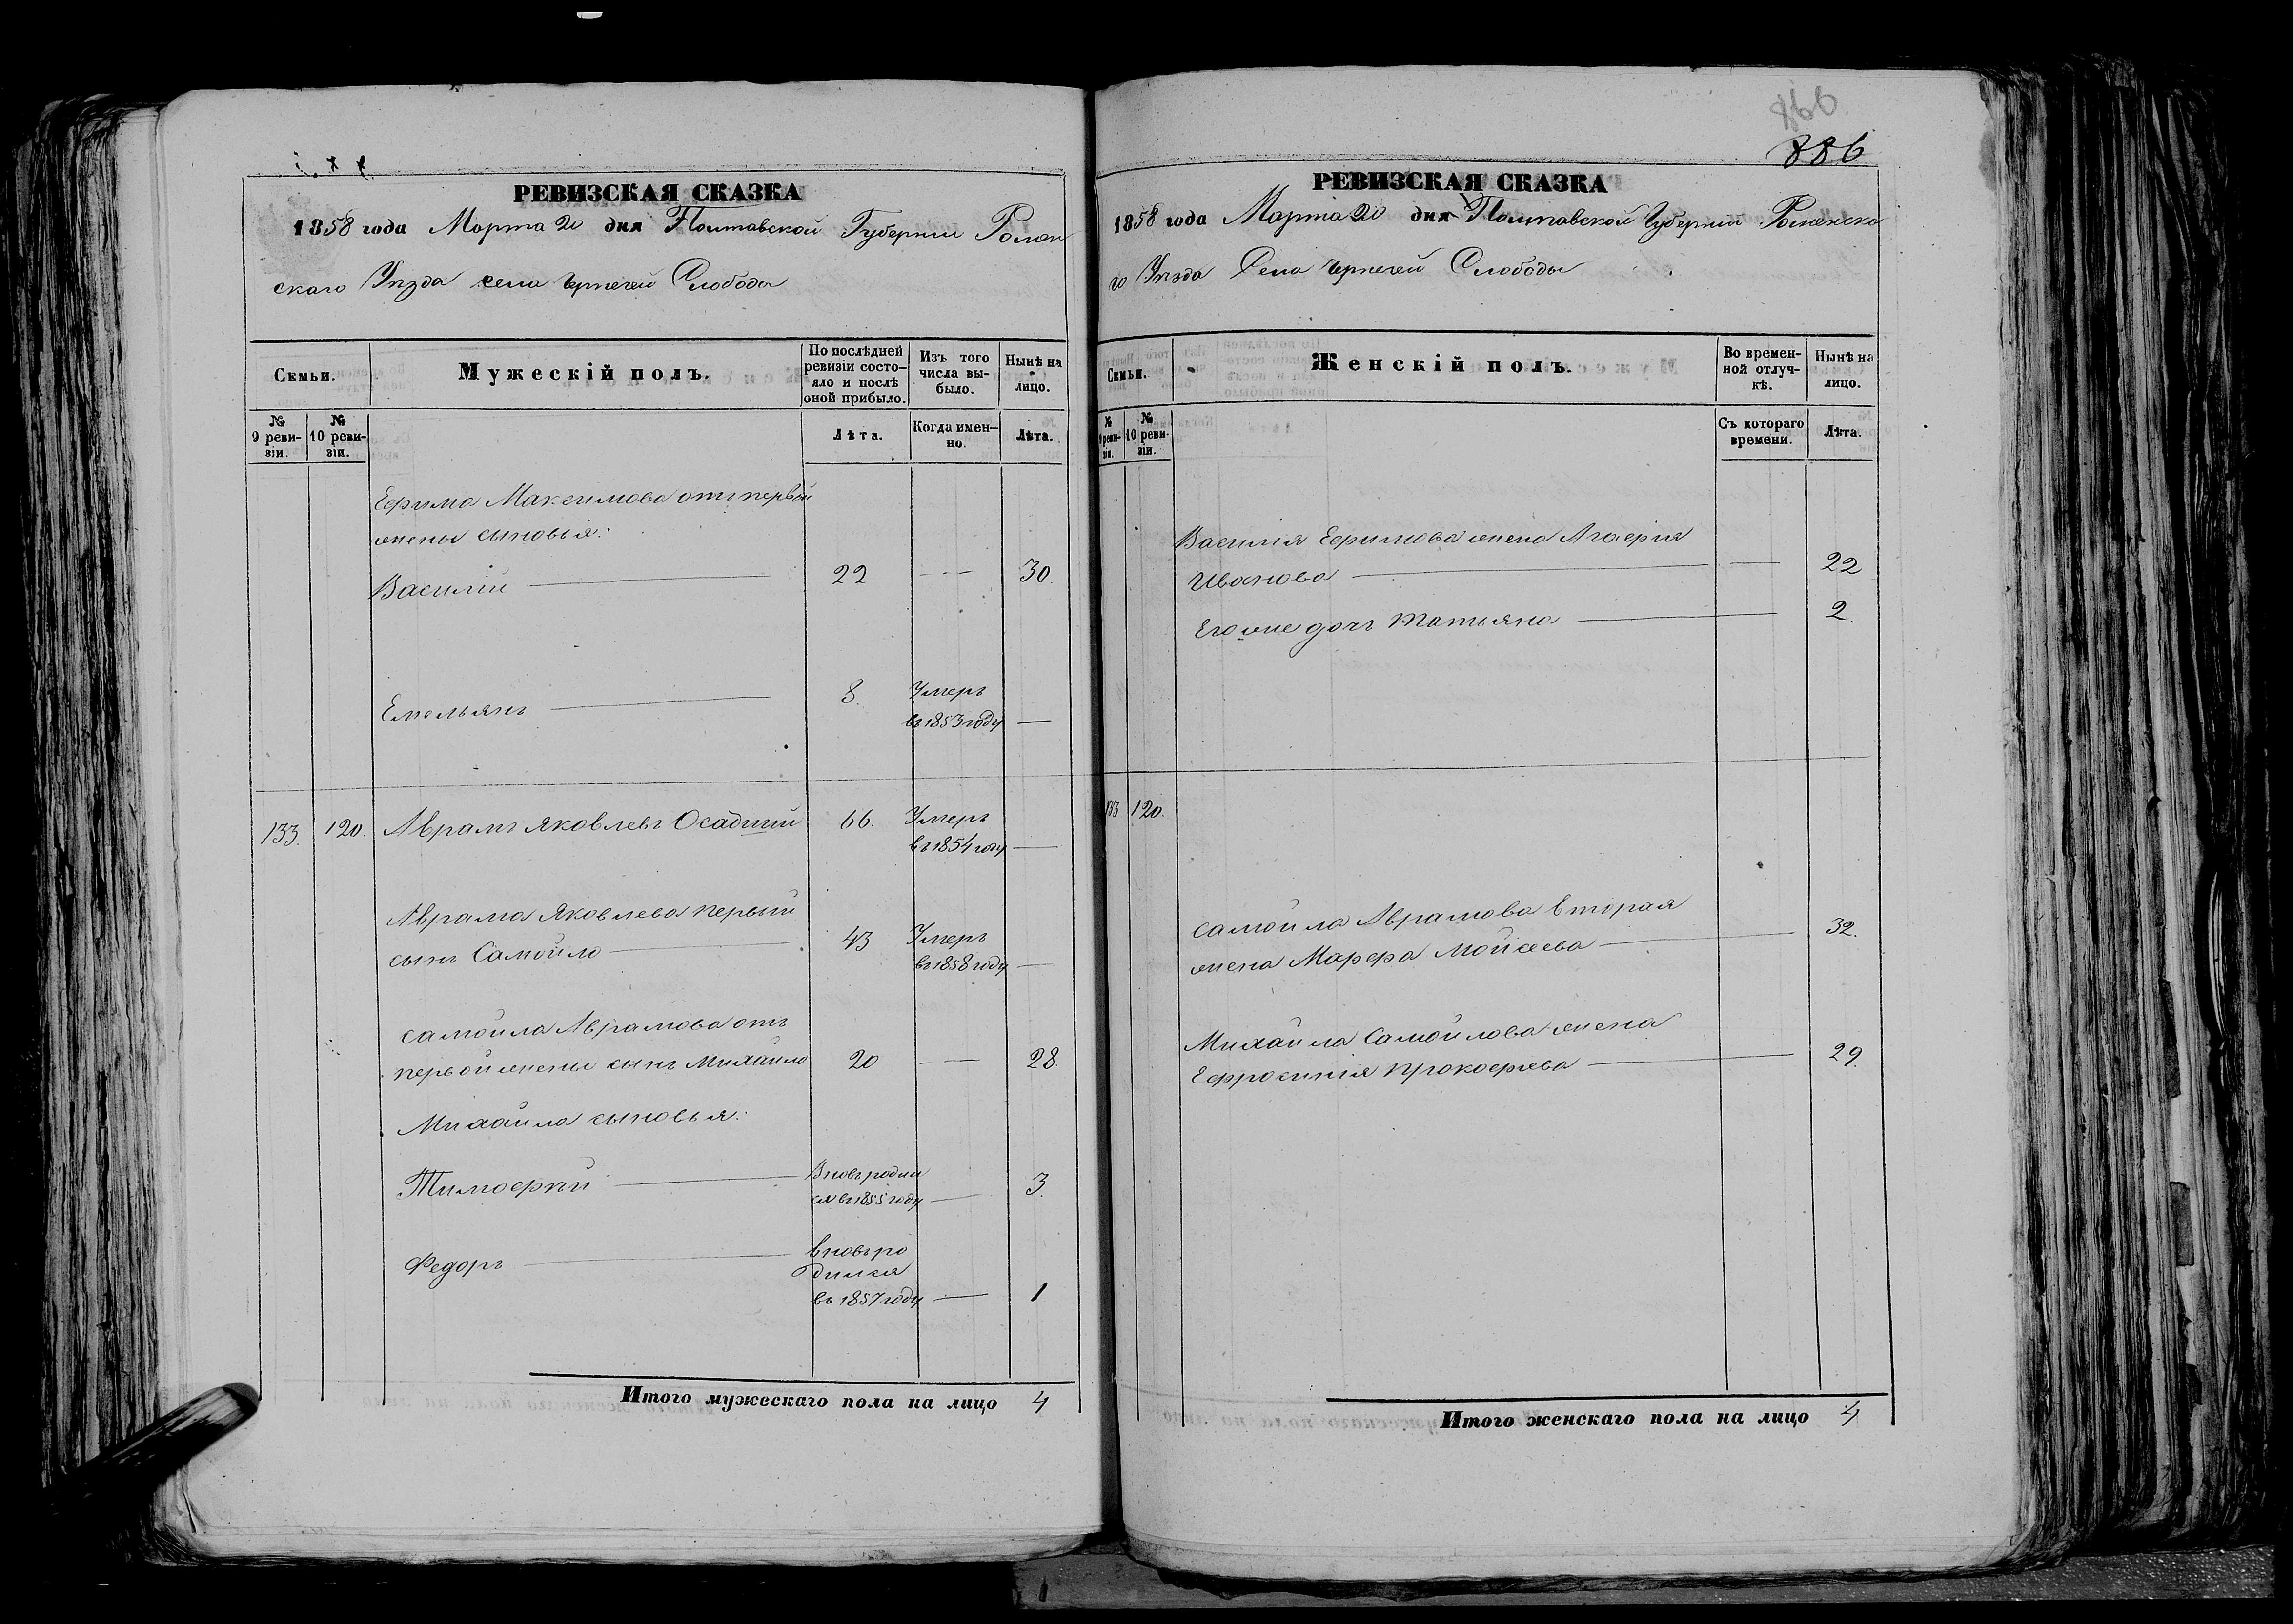 РЕВИЗСКАЯ СКАЗКА
1858 года Марта 20 дня Полтавской Губернии Ромен
скаго Уѣзда села Чернечей Слободы
Семьи.
Мужескій полъ.
По послѣдней ревизіи состо-
яло и послѣ оной прибыло.
Изъ того числа вы-
было.
Нынѣ на лицо.
№ 9 реви-
зіи.
№ 10 реви-
зіи.
Лѣта.
Когда имен-
но.
Лѣта.
Ефима Максимова отъ первой
жены сыновья:
Василій 22 30.
Емельянъ 8. Умеръ
въ 1853 году
133. 120. Аврамъ Яковлевъ Осадчий 66. Умеръ
въ 1854 году
Аврама Яковлева первый
сынъ Самойло 43 Умеръ
въ 1858 году
Самойла Аврамова отъ
первой жены сынъ Михайло 20 28.
Михайла сыновья:
Тимофей Вновь родил
ся въ 1855 году 3.
Федоръ вновь ро
дился
въ 1857 году 1
Итого мужескаго пола на лицо 4
866
886
РЕВИЗСКАЯ СКАЗКА
1858 года Марта 20 дня Полтавской Губернии Роменска
го Уѣзда Села Чернечей Слободы
Семьи.
Женскій полъ.
Во времен-
ной отлуч-
кѣ.
Нынѣ на лицо.
№ 9 реви-
зіи.
№ 10 реви-
зіи.
Съ котораго времени.
Лѣта.
Василія Ефимова жена Агафія
Иванова 22
Его же дочь Татьяна 2.
133 120.
Самойла Аврамова вторая
жена Марфа Мойсеева 32.
Михайла Самойлова жена
Ефросинія Прокофьева 29.
Итого женскаго пола на лицо 4